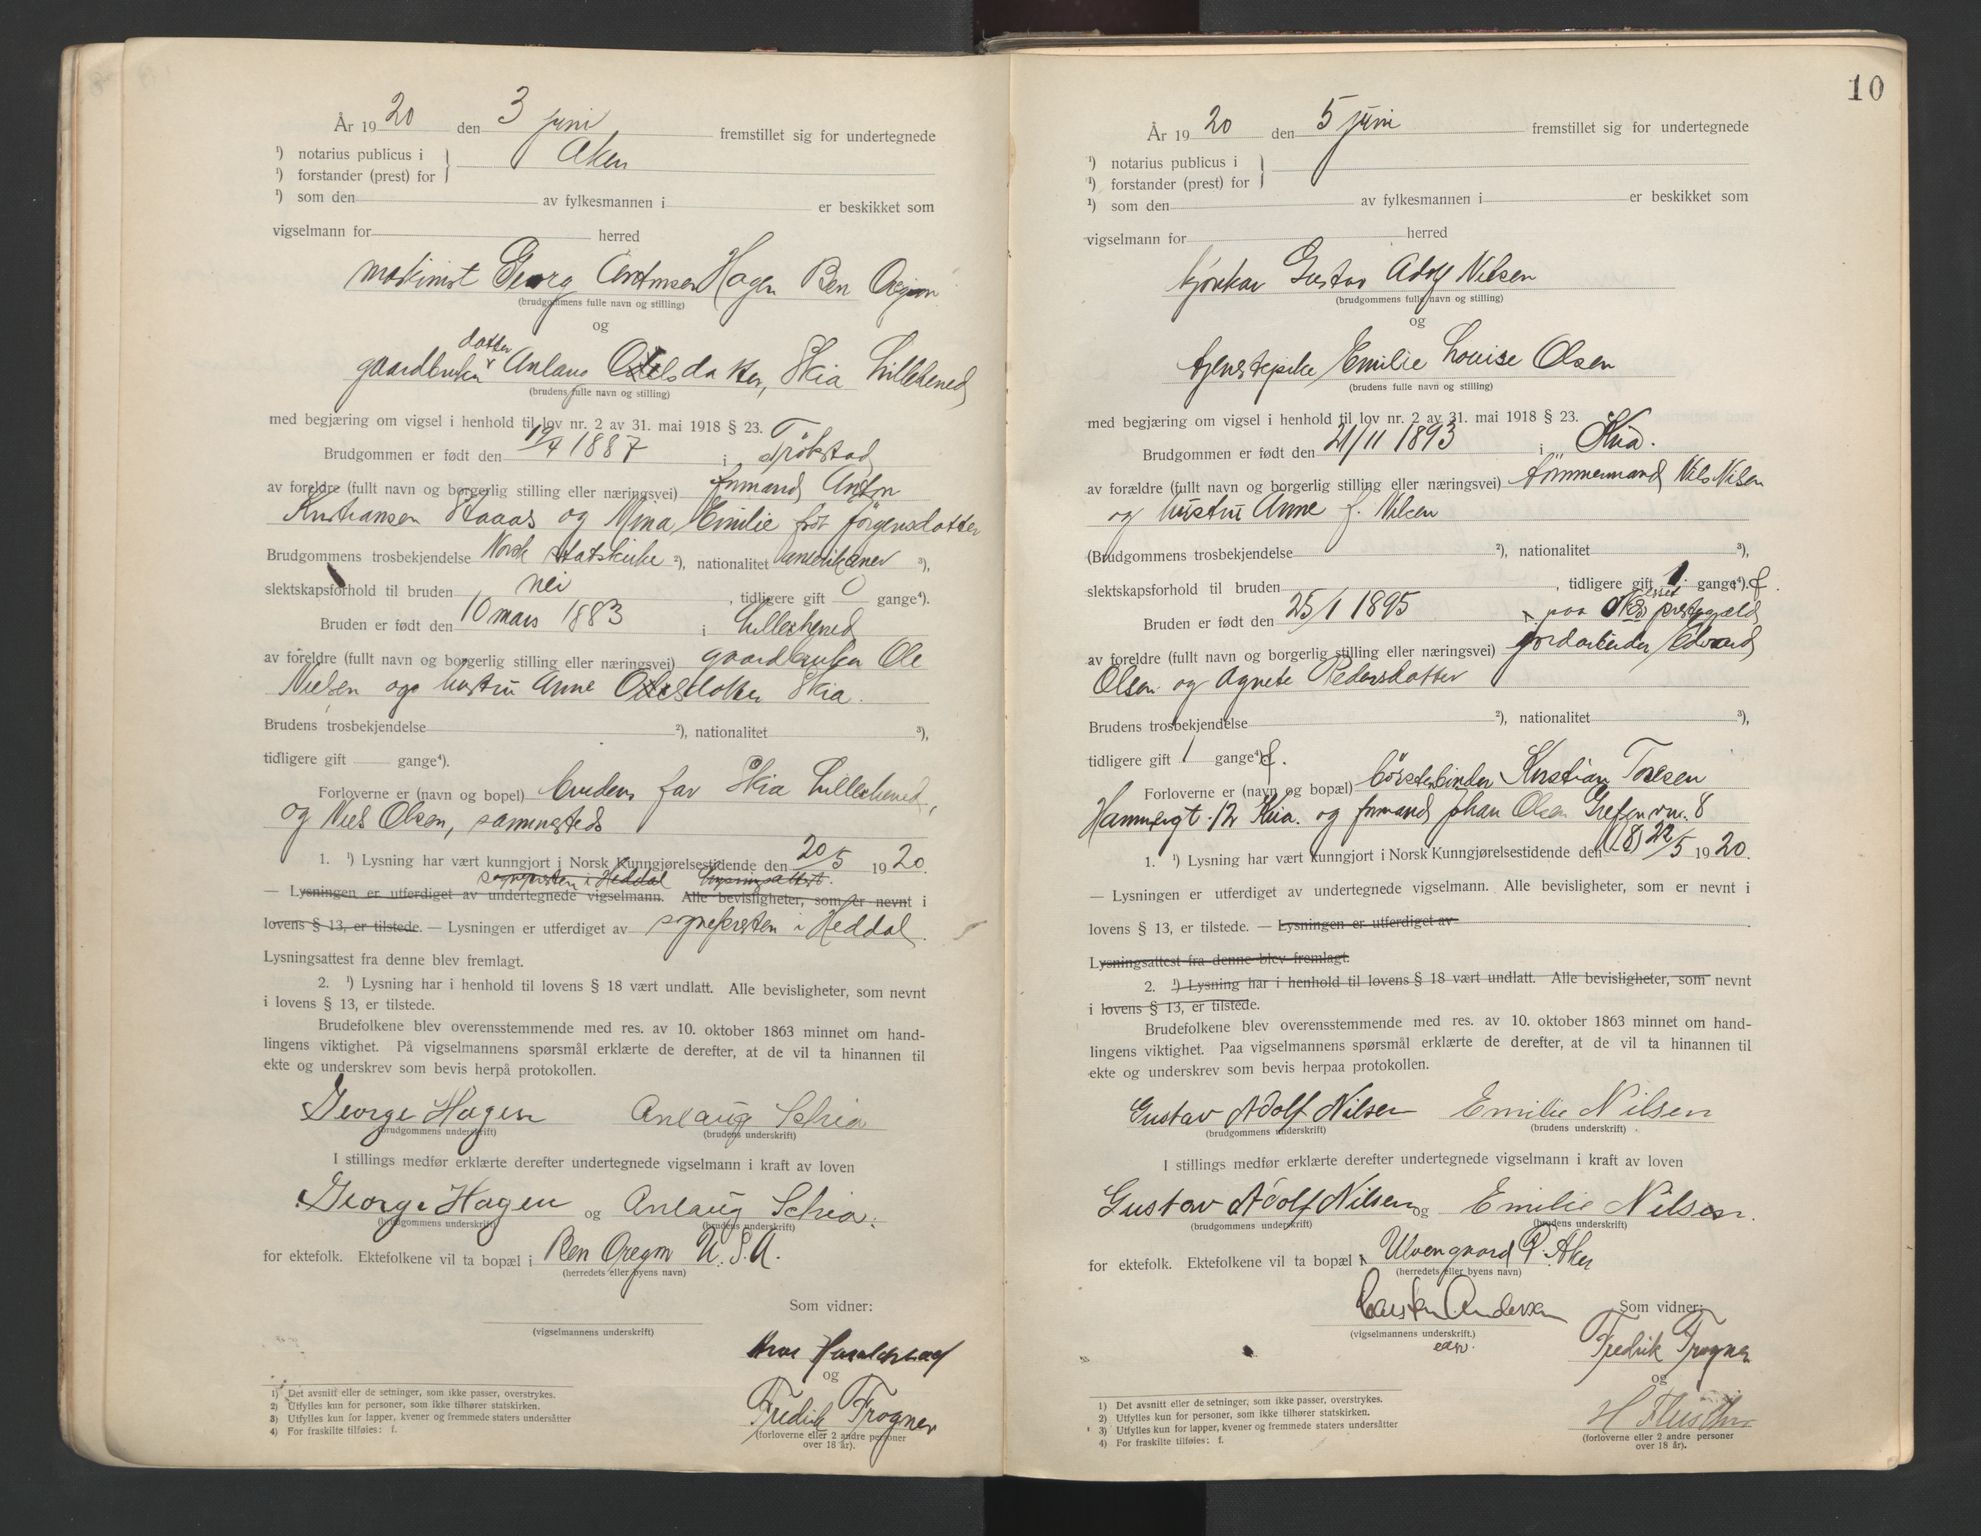 År 1920 den 3 juni fremstillet sig for undertegnede
¹) notarius publicus i Aker
¹) forstander (prest) for
¹) som den av fylkesmannen i er beskikket som
vigselmann for herred
maskinist Georg Antonsen Hagen Ben Oregon
(brudgommens fulle navn og stilling)
og
datter
gaardbruker Anlaug Olesdatter, Skia Lilleherred
(brudens fulle navn og stilling)
med begjæring om vigsel i henhold til lov nr. 2 av 31. mai 1918 § 23.
Brudgommen er født den 19/4 1887 i Trökstad
av foreldre (fullt navn og borgerlig stilling eller næringsvei) formand Anton
Kristiansen Staaas og Mina Emilie født Jörgensdatter
Brudgommens trosbekjendelse Norsk statskirke ²), nationalitet amerikaner ³),
slektskapsforhold til bruden nei, tidligere gift 0 gange⁴).
Bruden er født den 10 mars 1883 i Lilleherred
av foreldre (fullt navn og borgerlig stilling eller næringsvei) gaardbruker Ole
Nielsen og hustru Anne Olesdatter Skia.
Brudens trosbekjendelse ²), nationalitet ³),
tidligere gift gange⁴).
Forloverne er (navn og bopel) brudens far Skia Lilleherred,
og Niels Olsen, sammesteds
1. ¹) Lysning har vært kunngjort i Norsk Kunngjørelsestidende den 20/5 1920.
sognepresten i Heddal lysningsattest.
— Lysningen er utferdiget av undertegnede vigselmann. Alle bevisligheter, som er nevnt i
lovens § 13, er tilstede. — Lysningen er utferdiget av sognepresten i Heddal.
Lysningsattest fra denne blev fremlagt.
2. ¹) Lysning har i henhold til lovens § 18 vært undlatt. Alle bevisligheter, som nevnt
i lovens § 13, er tilstede.
Brudefolkene blev overensstemmende med res. av 10. oktober 1863 minnet om hand-
lingens viktighet. På vigselmannens spørsmål erklærte de derefter, at de vil ta hinannen til
ekte og underskrev som bevis herpå protokollen.
George Hagen Anlaug Schia
(brudgommens underskrift) (brudens underskrift)
I stillings medfør erklærte derefter undertegnede vigselmann i kraft av loven
George Hagen og Anlaug Schia.
(brudgommens underskrift) (brudens underskrift)
for ektefolk. Ektefolkene vil ta bopæl i Ben Oregon U.S.A.
(herredets eller byens navn)
Som vidner:
(vigselmannens underskrift)
og
Fredrik Trogner
(forloverne eller 2 andre personer
over 18 år).
1) Det avsnitt eller de setninger, som ikke passer, overstrykes.
2) Utfylles kun for personer, som ikke tilhører statskirken.
3) Utfylles kun for lapper, kvener og fremmede staters undersåtter
4) For fraskilte tilføies: f.
10
År 1920 den 5 juni fremstillet sig for undertegnede
¹) notarius publicus i
¹) forstander (prest) for
¹) som den av fylkesmannen i er beskikket som
vigselmann for herred
kjörekar Gustav Adolf Nilsen
(brudgommens fulle navn og stilling)
og
tjenestepike Emilie Louise Olsen
(brudens fulle navn og stilling)
med begjæring om vigsel i henhold til lov nr. 2 av 31. mai 1918 § 23.
Brudgommen er født den 21/11 1893 i Kria.
av forældre (fullt navn og borgerlig stilling eller næringsvei) tömmermand Nils Nilsen
og hustru Anne f. Nilsen
(Brudgommens trosbekjendelse ²), nationalitet ³),
slektskapsforhold til bruden, tidligere gift 1 gange⁴). f.
Bruden er født den 25/1 1895 paa Nes prestegjeld
av foreldre (fullt navn og borgerlig stilling eller næringsvei) jordarbeider Edvard
Olsen og Agnete Pedersdatter
Brudens trosbekjendelse ²), nationalitet ³),
tidligere gift 1 gange⁴) f.
Forloverne er (navn og bopæl) börstenbinder Kristian Toresen
Hammergt. 12 Kria. og formand Johan Olsen Grefsenvn. 8
1. ¹) Lysning har vært kunngjort i Norsk Kunngjørelsestidende den (18) 22/5 1920.
— Lysningen er utferdiget av undertegnede vigselmann. Alle bevisligheter, som er nevnt i
lovens § 13, er tilstede. — Lysningen er utferdiget av
Lysningsattest fra denne blev fremlagt.
2. ¹) Lysning har i henhold til lovens § 18 vært undlatt. Alle bevisligheter, som nevnt
i lovens § 13, er tilstede.
Brudefolkene blev overensstemmende med res. av 10. oktober 1863 minnet om hand-
lingens viktighet. Paa vigselmannens spørsmål erklærte de derefter, at de vil ta hinannen til
ekte og underskrev som bevis herpaa protokollen.
Gustav Adolf Nilsen Emilie Nilsen
(brudgommens underskrift) (brudens underskrift)
I stillings medfør erklærte derefter undertegnede vigselmann i kraft av loven
Gustav Adolf Nilsen og Emilie Nilsen.
(brudgommens underskrift) (brudens underskrift)
for ektefolk. Ektefolkene vil ta bopæl i Ulvengaard Ö. Aker
(herredets eller byens navn)
Carsten Andersen Som vidner:
(vigselmannens underskrift.)
Fredrik Trogner
og
(forloverne eller 2 andre personer
over 18 år).
1) Det avsnitt eller de setninger, som ikke passer, overstrykes.
2) Utfylles kun for personer, som ikke tilhører statskirken.
3) Utfylles kun for lapper, kvener og fremmede staters undersåtter
4) For fraskilte tilføies: f.